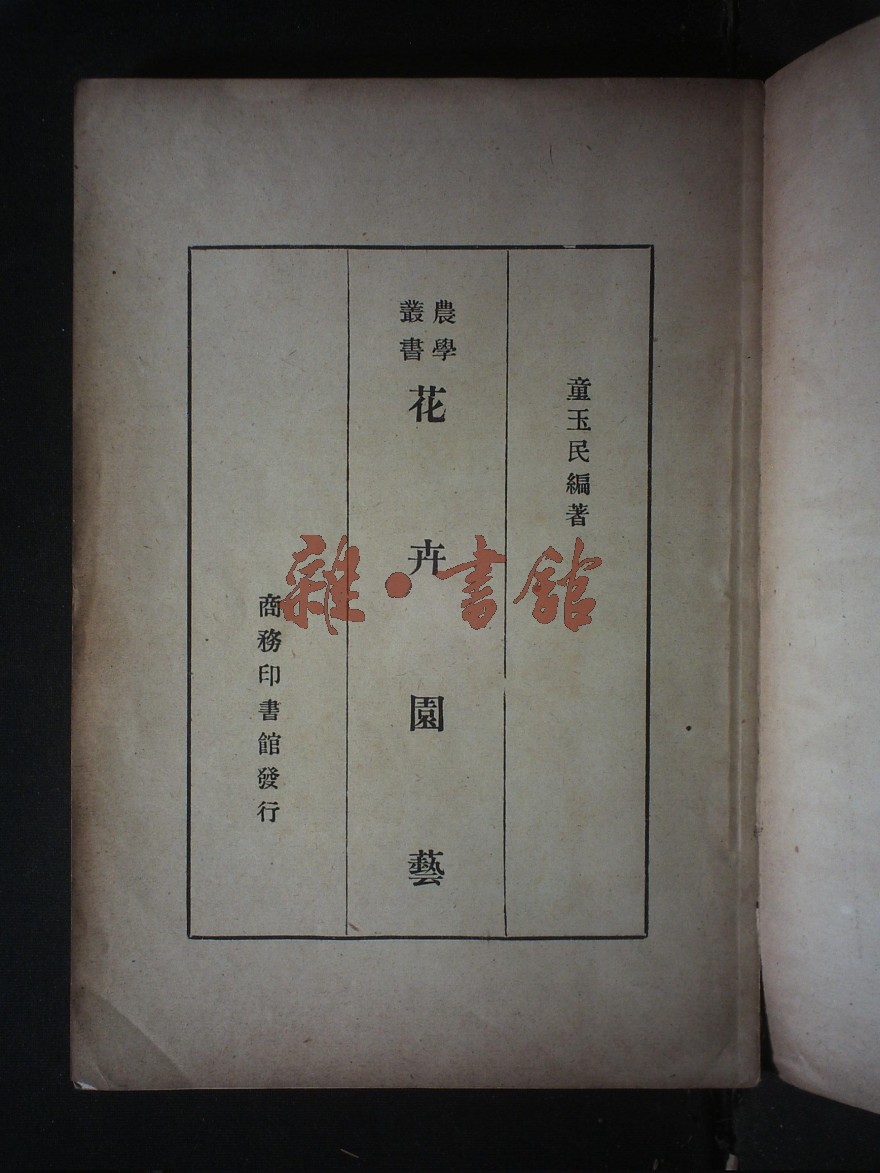 童玉民編著
農學
叢書
花卉園藝
商務印書館發行
雜·書館